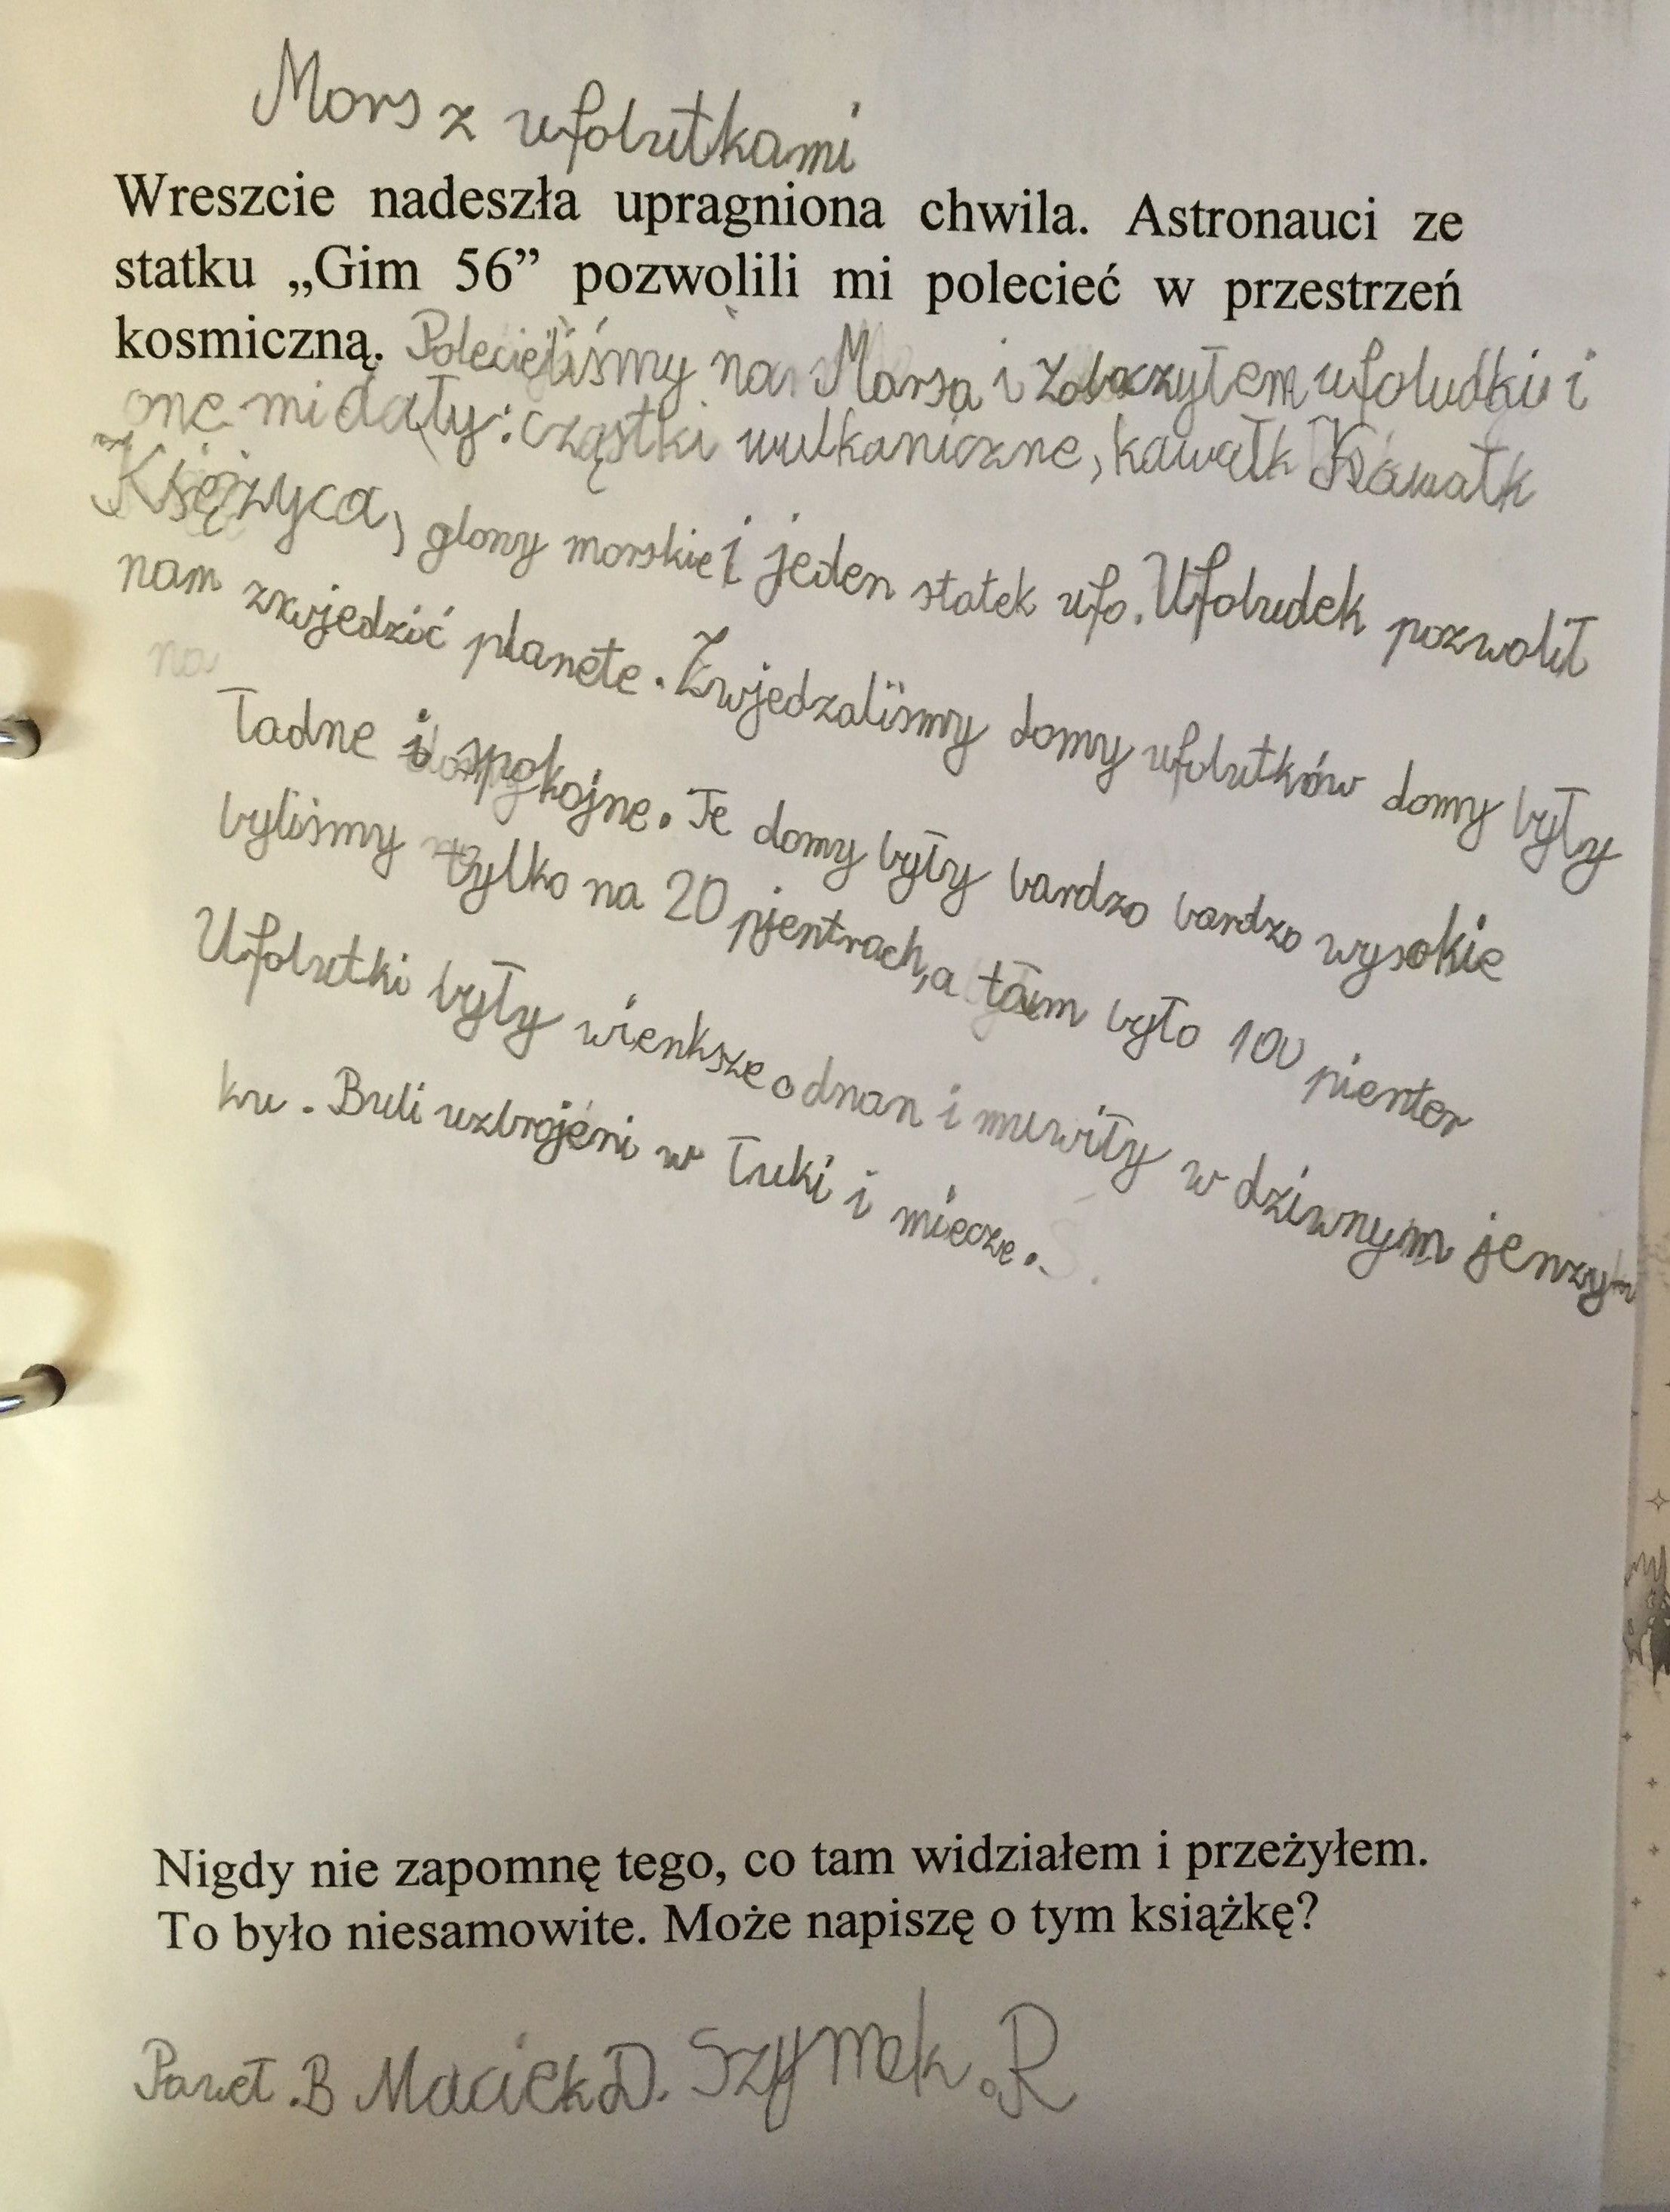 Mars z ufolutkami
Wreszcie nadeszła upragniona chwila. Astronauci ze
statku „Gim 56” pozwolili mi polecieć w przestrzeń
kosmiczną. Polecieliśmy na Marsa i zobaczyłem ufoludki i
one mi dały: cząstki wulkaniczne, kawałk Kawałk
Księżyca, glony morskie i jeden statek ufo. Ufoludek pozwolił
nam zwjedzić planete. Zwjedzaliśmy domy ufolutków domy były
na
Ładne i spokojne. Te domy były bardzo bardzo wysokie
byliśmy tylko na 20 pjentrach, a tam było 100 pienter
Ufolutki były wienksze od nan i muwiły w dziwnym jenzy-
ku. Buli uzbrojeni w Łuki i miecze.
Nigdy nie zapomnę tego, co tam widziałem i przeżyłem.
To było niesamowite. Może napiszę o tym książkę?
Paweł .B Maciek D. Szymek .R